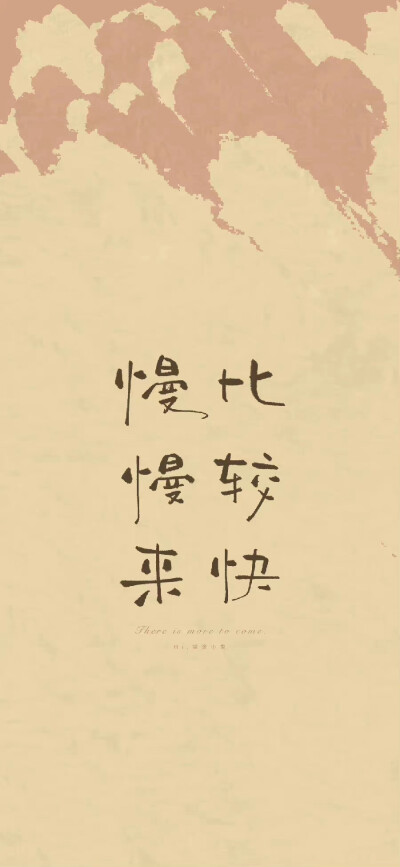 慢慢来
比较快
There is more to come